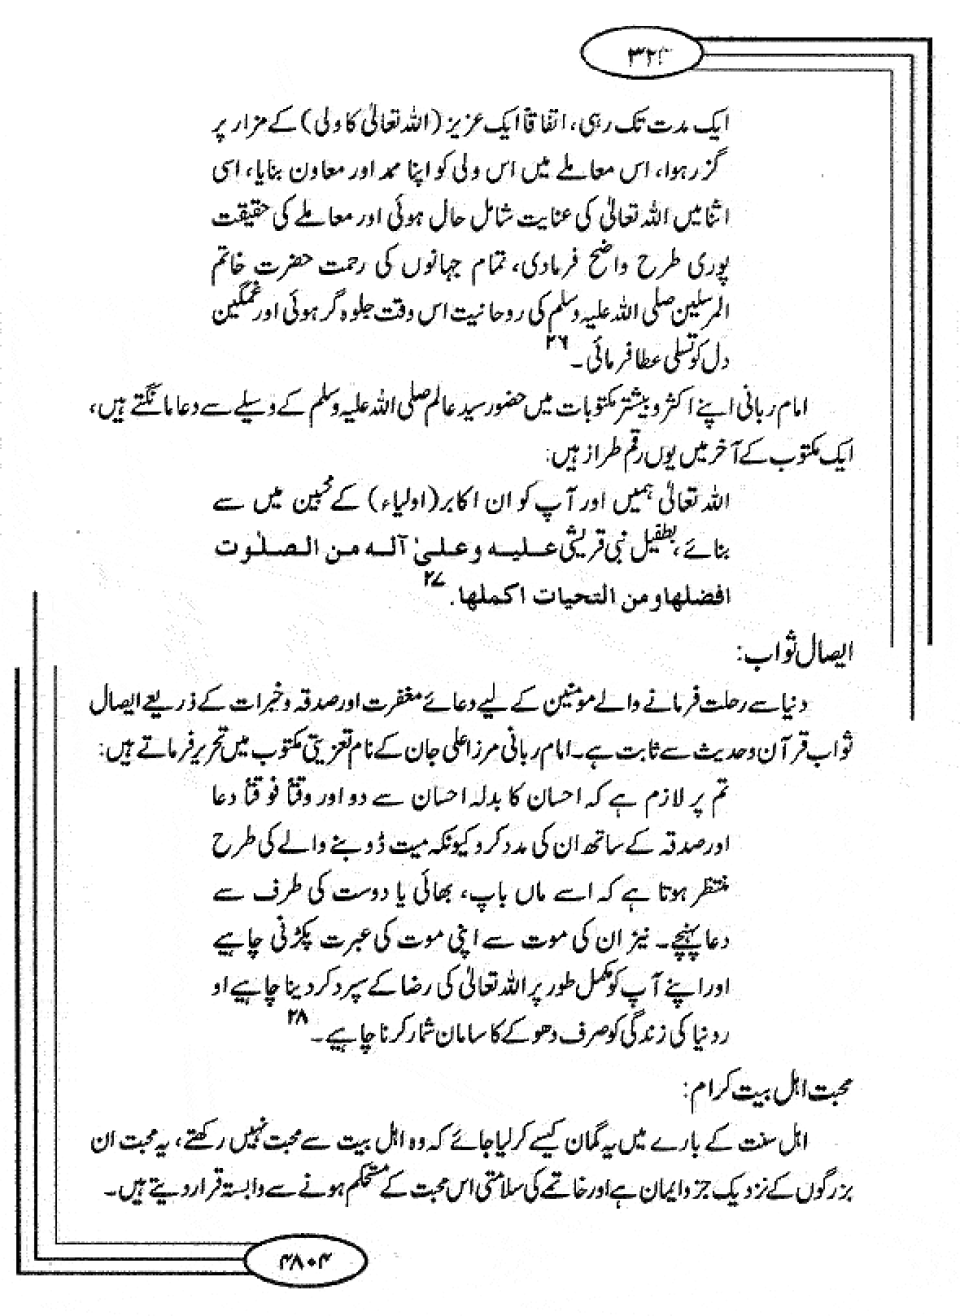 ایک مدت تک رہی، اتفاقاً ایک عزیز (اللہ تعالیٰ کا ولی) کے مزار پر
گزر ہوا، اس معاملے میں اس ولی کو اپنا ممد اور معاون بنایا، اسی
اثنا میں اللہ تعالیٰ کی عنایت شامل حال ہوئی اور معاملے کی حقیقت
پوری طرح واضح فرمادی، تمام جہانوں کی رحمت حضرت خاتم
المرسلین صلی اللہ علیہ وسلم کی روحانیت اس وقت جلوہ گر ہوئی اور غمگین
دل کو تسلی عطا فرمائی۔ ۲۶
امام ربانی اپنے اکثر و بیشتر مکتوبات میں حضور سید عالم صلی اللہ علیہ وسلم کے وسیلے سے دعا مانگتے ہیں،
ایک مکتوب کے آخر میں یوں رقم طراز ہیں:
اللہ تعالیٰ ہمیں اور آپ کو ان اکابر (اولیاء) کے محبین میں سے
بنائے، بطفیل نبی قریشی علیہ وعلیٰ آلہ من الصلٰوت
افضلها ومن التحیات اکملها۔ ۲۷
ایصال ثواب:
دنیا سے رحلت فرمانے والے مومنین کے لیے دعائے مغفرت اور صدقہ و خیرات کے ذریعے ایصال
ثواب قرآن وحدیث سے ثابت ہے۔ امام ربانی مرزا علی جان کے نام تعزیتی مکتوب میں تحریر فرماتے ہیں:
تم پر لازم ہے کہ احسان کا بدلہ احسان سے دو اور وقتاً فوقتاً دعا
اور صدقہ کے ساتھ ان کی مدد کرو کیونکہ میت ڈوبنے والے کی طرح
منتظر ہوتا ہے کہ اسے ماں باپ، بھائی یا دوست کی طرف سے
دعا پہنچے۔ نیز ان کی موت سے اپنی موت کی عبرت پکڑنی چاہیے
اور اپنے آپ کو مکمل طور پر اللہ تعالیٰ کی رضا کے سپرد کر دینا چاہیے او
ر دنیا کی زندگی کو صرف دھوکے کا سامان شمار کرنا چاہیے۔ ۲۸
محبت اہل بیت کرام:
اہل سنت کے بارے میں یہ گمان کیسے کر لیا جائے کہ وہ اہل بیت سے محبت نہیں رکھتے، یہ محبت ان
بزرگوں کے نزدیک جزو ایمان ہے اور خاتمے کی سلامتی اس محبت کے مستحکم ہونے سے وابستہ قرار دیتے ہیں۔
۴۸۰۴